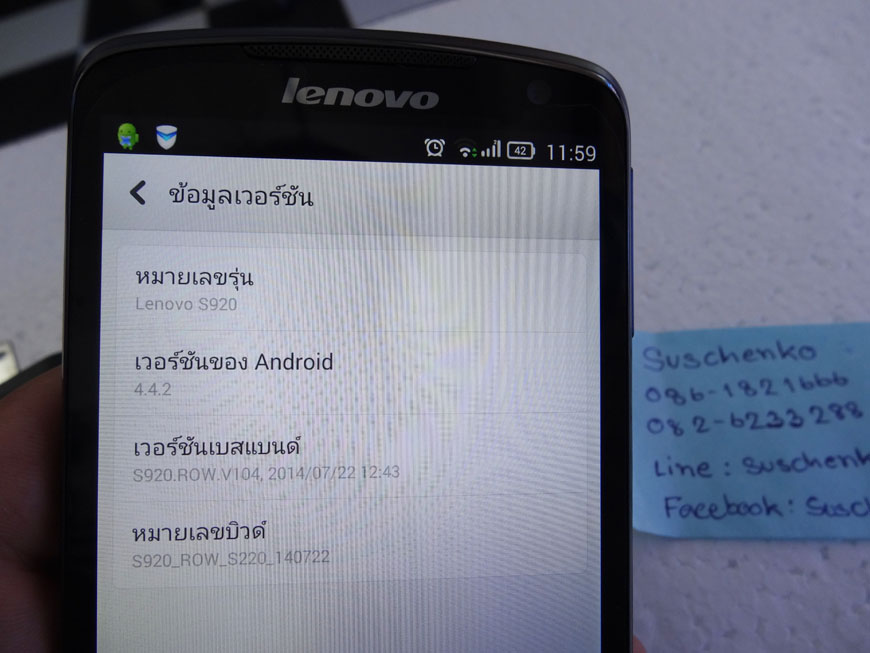 lenovo
42 11:59
ข้อมูลเวอร์ชัน
หมายเลขรุ่น
Lenovo S920
เวอร์ชันของ Android
4.4.2
เวอร์ชันเบสแบนด์
S920.ROW.V104, 2014/07/22 12:43
หมายเลขบิวด์
S920_ROW_S220_140722
Suschenko
086-1821666
082-6233288
Line : Suschenk
Facebook : Susch